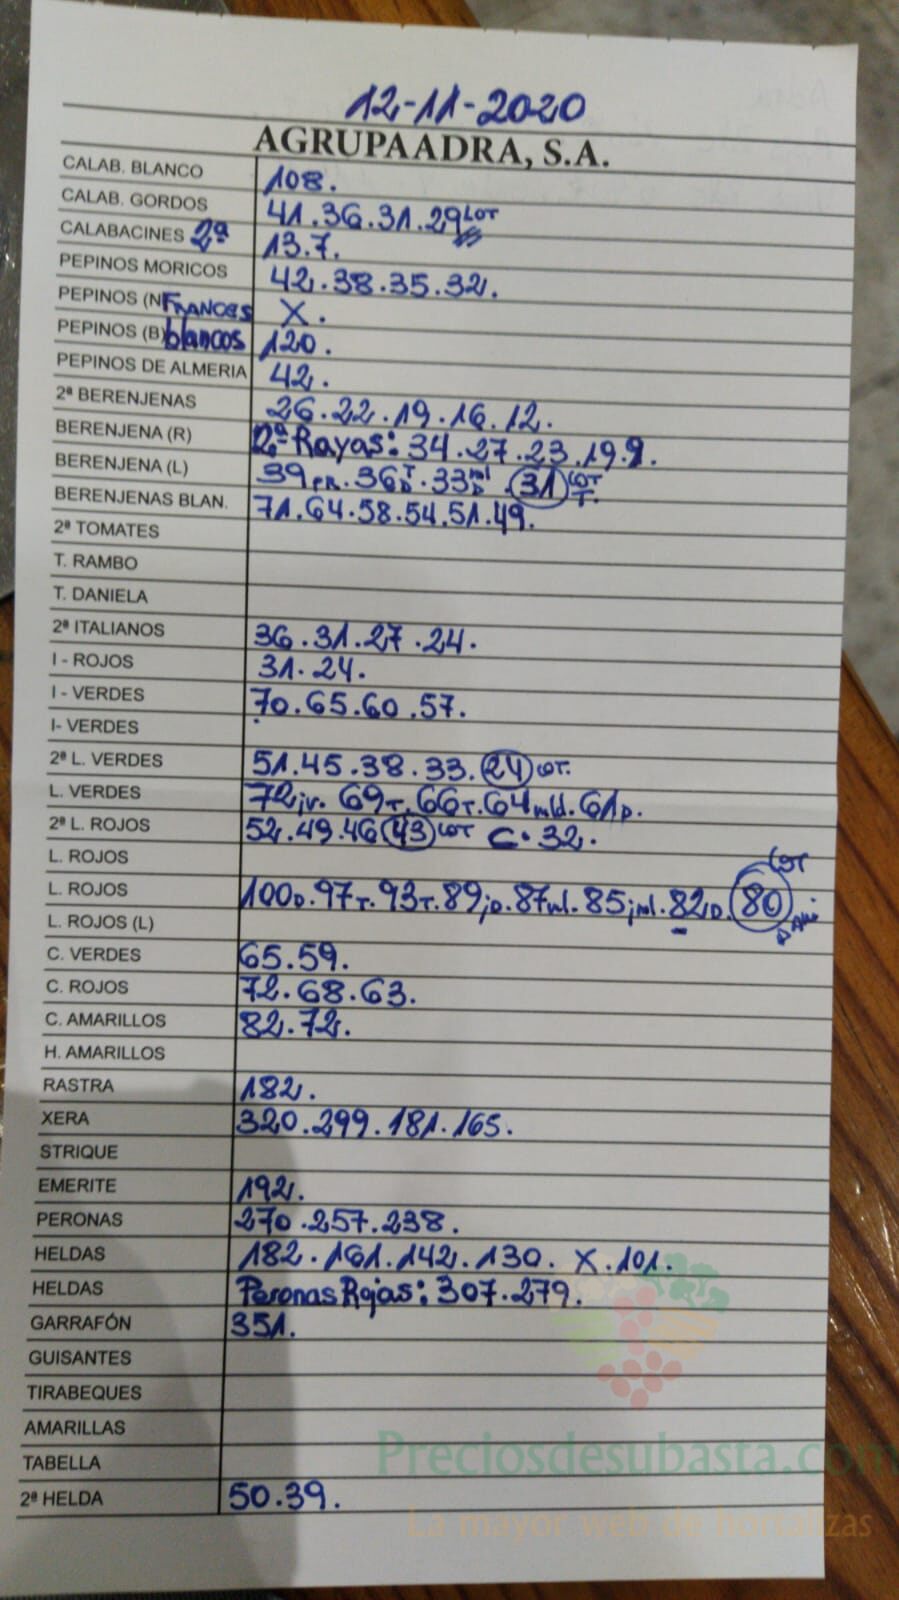 12-11-2020
AGRUPAADRA, S.A.
CALAB. BLANCO 108.
CALAB. GORDOS 41.36.31.29 LOT
CALABACINES 2ª 13.7.
PEPINOS MORICOS 42.38.35.32.
PEPINOS (N FRANCES X.
PEPINOS (B) blancos 120.
PEPINOS DE ALMERIA 42.
2ª BERENJENAS 26.22.19.16.12.
BERENJENA (R) 2ª Rayas: 34.27.23.19.9.
BERENJENA (L) 39 PR. 36 . 33 . 31 LOT T.
BERENJENAS BLAN. 71.64.58.54.51.49.
2ª TOMATES
T. RAMBO
T. DANIELA
2ª ITALIANOS 36.31.27.24.
I - ROJOS 31.24.
I - VERDES 70.65.60.57.
I- VERDES
2ª L. VERDES 51.45.38.33.24 LOT.
L. VERDES 72jv. 69T. 66T. 64mld. 61D.
2ª L. ROJOS 52.49.46 43 LOT C. 32.
L. ROJOS
L. ROJOS 100D.97T.93T.89jD.87ml.85jml.82D. 80 LOT
L. ROJOS (L)
C. VERDES 65.59.
C. ROJOS 72.68.63.
C. AMARILLOS 82.72.
H. AMARILLOS
RASTRA 182.
XERA 320.299.181.165.
STRIQUE
EMERITE 192.
PERONAS 270.257.238.
HELDAS 182.161.142.130. X.101.
HELDAS Peronas Rojas: 307.279.
GARRAFÓN 351.
GUISANTES
TIRABEQUES
AMARILLAS
TABELLA
Preciosdesubasta.com
2ª HELDA 50.39.
La mayor web de hortalizas